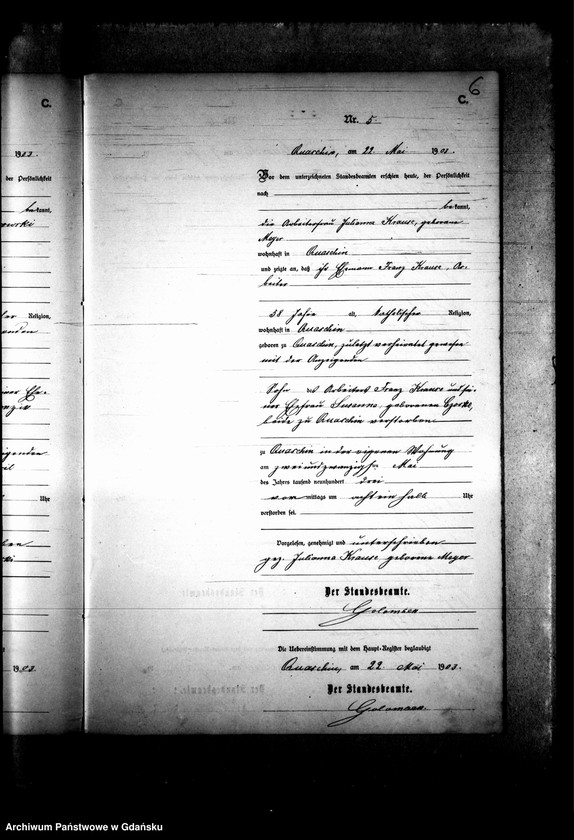 C.
1903.
der Persönlichkeit
bekannt,
Religion,
Uhr
1903.
6
C.
Nr. 5
Quaschin, am 22. Mai 1903.
Vor dem unterzeichneten Standesbeamten erschien heute, der Persönlichkeit
nach
bekannt,
die Arbeiterfrau Julianna Krause, geborene
Meyer
wohnhaft in Quaschin
und zeigte an, daß ihr Ehemann Franz Krause, Ar-
beiter
58 Jahre alt, katholischer Religion,
wohnhaft in Quaschin
geboren zu Quaschin, zuletzt verheiratet gewesen
mit der Anzeigenden
Sohn des Arbeiters Franz Krause und sei-
ner Ehefrau Susanna, geborenen
beide zu Quaschin verstorben
zu Quaschin in der eigenen Wohnung
am zweiundzwanzigsten Mai
des Jahres tausend neunhundert drei
vor mittags um acht ein halb Uhr
verstorben sei.
Vorgelesen, genehmigt und unterschrieben
gez. Julianna Krause geborene Meyer
Der Standesbeamte.
Die Uebereinstimmung mit dem Haupt-Register beglaubigt
Quaschin, am 22. Mai 1903.
Der Standesbeamte.
Archiwum Państwowe w Gdańsku